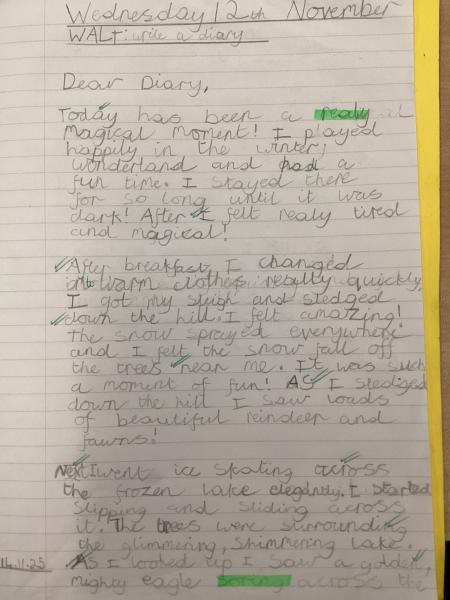 Wednesday 12th November
WALT: write a diary
Dear Diary,
Today has been a realy
magical moment! I played
happily in the winter,
wonderland and had a
fun time. I stayed there
for so long until it was
dark! After I felt realy tired
and magical!
After breakfast, I changed
into warm clothes really quickly.
I got my sleigh and sledged
down the hill. I felt amazing!
the snow sprayed everywhere
and I felt the snow fall off
the trees near me. It was such
a moment of fun! As I sledged
down the hill I saw loads
of beautiful reindeer and
fawns!
Next I went ice skating across
the frozen lake elegantly. I started
slipping and sliding across
it. The trees were surrounding
the glimmering, shimmering lake.
14.11.25
As I looked up I saw a golden,
mighty eagle soring across the